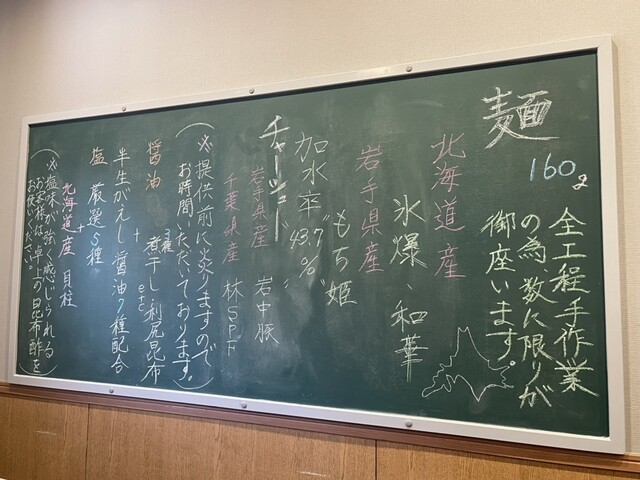 麺
160g
全工程手作業
の為、数に限りが
御座います。
北海道産
氷爆、和華
岩手県産
もち姫
加水率"43.7%"
チャーシュー
岩手県産 岩中豚
千葉県産 林SPF
(※提供前に炙りますので
お時間いただいております。)
醤油 3種煮干し 利尻昆布etc
+
半生がえし 醤油7種配合
塩 厳選5種
+
北海道産 貝柱
(※塩味が強く感じられる
お客様は、卓上の昆布酢を
お使いください。)